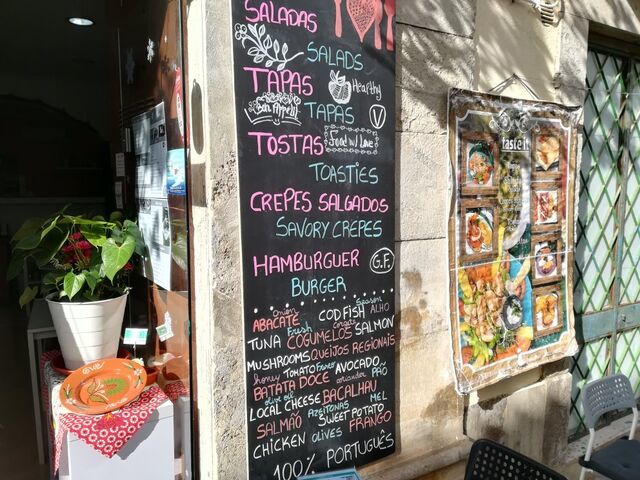 SALADAS
SALADS
TAPAS
Healthy
Bon Appetit
TAPAS
V
TOSTAS
Food w/ Love
TOASTIES
CREPES SALGADOS
SAVORY CREPES
HAMBURGUER
G.F.
BURGER
ABACATE Onion CODFISH Season ALHO
TUNA Fresh COGUMELOS SALMON
MUSHROOMS QUEIJOS REGIONAIS
honey TOMATO AVOCADO
BATATA DOCE coriander PÃO
olive oil BACALHAU
LOCAL CHEESE AZEITONAS MEL
SALMÃO SWEET POTATO
CHICKEN OLIVES FRANGO
100% PORTUGUÊS
taste it